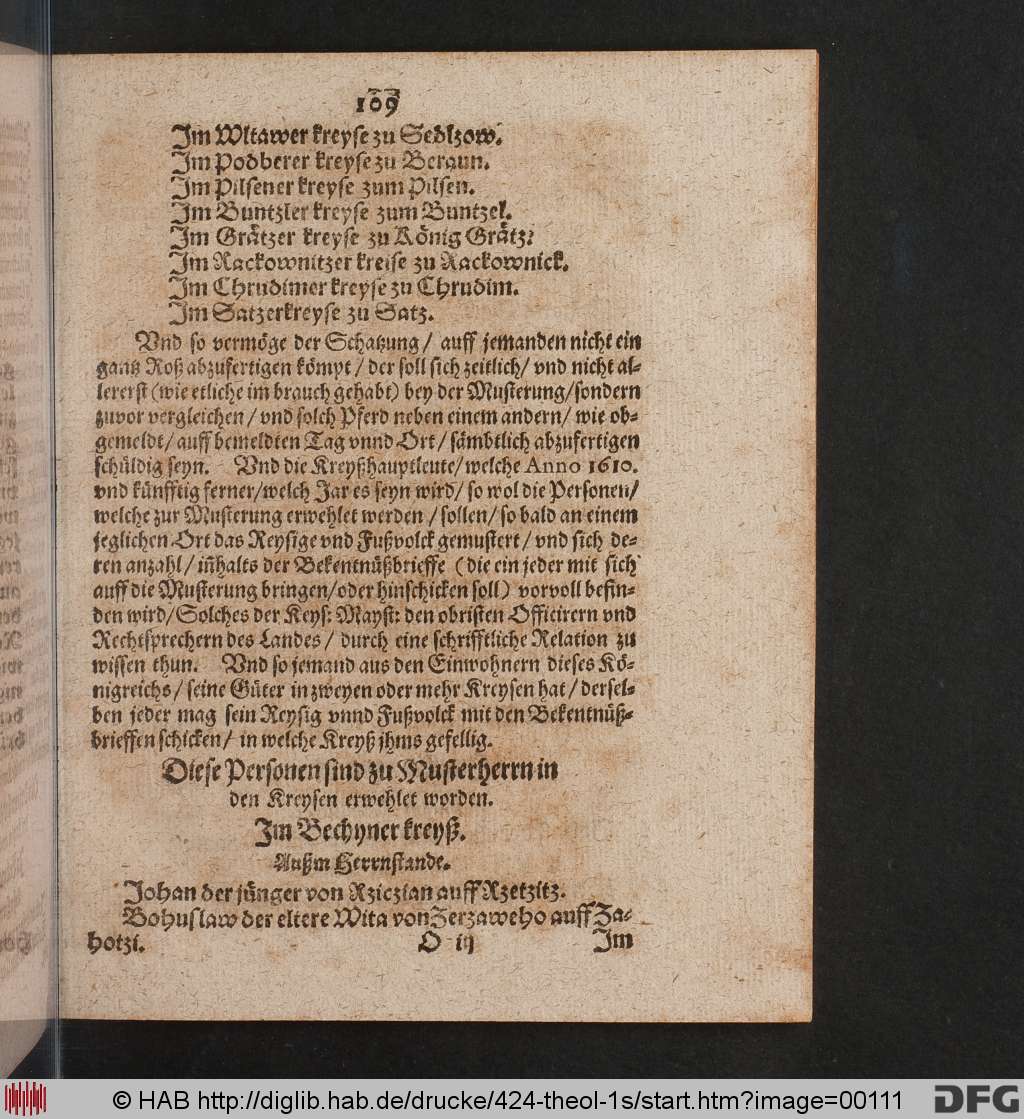 109
Im Wltawer kreyse zu Sedlzow.
Im Podberer kreyse zu Beraun.
Im Pilsener kreyse zum Pilsen.
Im Buntzler kreyse zum Buntzel.
Im Grätzer kreyse zu König Grätz:
Im Rackownitzer kreise zu Rackownick.
Im Chrudimer kreyse zu Chrudim.
Im Satzerkreyse zu Satz.
Vnd so vermöge der Schatzung / auff jemanden nicht ein
gantz Roß abzufertigen kömpt / der soll sich zeitlich / vnd nicht al-
lererst (wie etliche im brauch gehabt) bey der Musterung/sondern
zuvor vergleichen / vnd solch Pferd neben einem andern / wie ob-
gemeldt / auff bemeldten Tag vnnd Ort / sämbtlich abzufertigen
schüldig seyn. Vnd die Kreyßhauptleute/welche Anno 1610.
vnd künfftig ferner/welch Jar es seyn wird/ so wol die Personen/
welche zur Musterung erwehlet werden / sollen/ so bald an einem
jeglichen Ort das Reysige vnd Fußvolck gemustert / vnd sich de-
ren anzahl / iñhalts der Bekentnüßbrieffe (die ein jeder mit sich
auff die Musterung bringen/oder hinschicken soll) vorvoll befin-
den wird/Solches der Keys: Mayst: den obristen Officirern vnd
Rechtsprechern des Landes / durch eine schrifftliche Relation zu
wissen thun. Vnd so jemand aus den Einwohnern dieses Kö-
nigreichs / seine Güter in zweyen oder mehr Kreysen hat / dersel-
ben jeder mag sein Reysig vnnd Fußvolck mit den Bekentnüß-
brieffen schicken / in welche Kreyß jhms gefellig.
Diese Personen sind zu Musterherrn in
den Kreysen erwehlet worden.
Im Bechyner kreyß.
Außm Herrnstande.
Johan der jünger von Rziczian auff Rzetzitz.
Bohuslaw der eltere Wita von Zerzaweho auff Za-
hotzi. O iij Im
© HAB http://diglib.hab.de/drucke/424-theol-1s/start.htm?image=00111
DFG